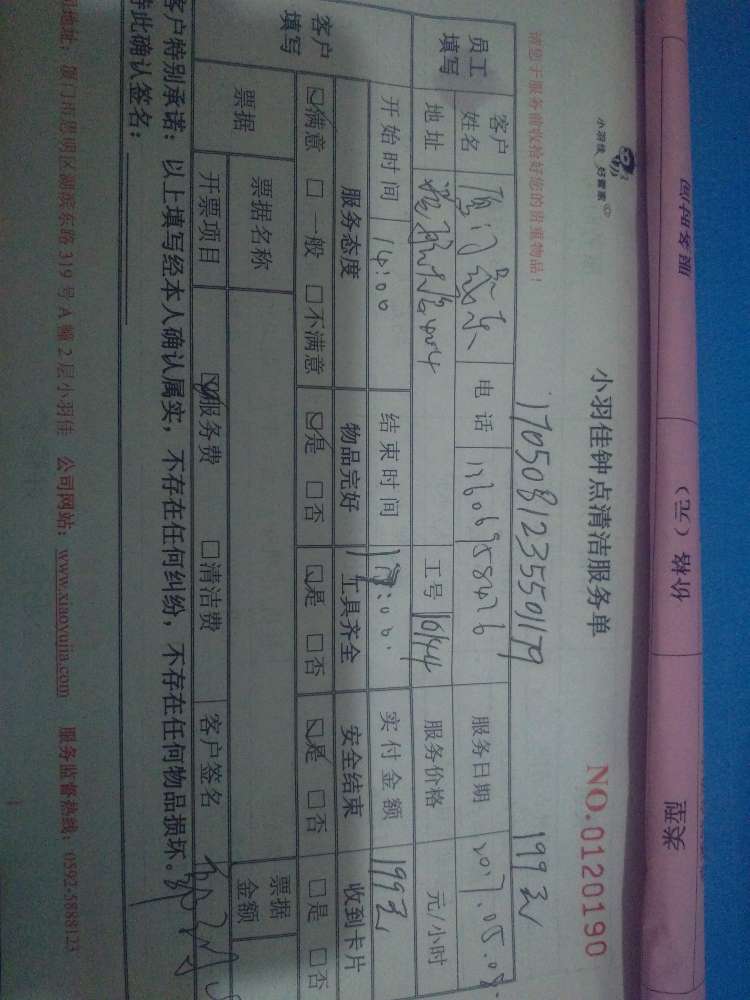 小羽佳 好管家
小羽佳钟点清洁服务单
NO.0120190
请您于服务前收拾好您的贵重物品！
170508123550179
199元
员工填写
客户姓名
厦门
电话
13606958426
服务日期
2017.05.08
地址
工号
10144
服务价格
元/小时
开始时间
14:00
结束时间
实付金额
199元
客户填写
服务态度
物品完好
工具齐全
安全结束
收到卡片
☑满意 □一般 □不满意
☑是 □否
☑是 □否
☑是 □否
□是 □否
票据
票据名称
票据金额
开票项目
☑服务费 □清洁费
客户签名
客户特别承诺：以上填写经本人确认属实，不存在任何纠纷，不存在任何物品损坏。
特此确认签名：
司地址：厦门市思明区湖滨东路319号A幢2层小羽佳 公司网站：www.xiaoyujia.com 服务监督热线：0592-5888123
价格（元）